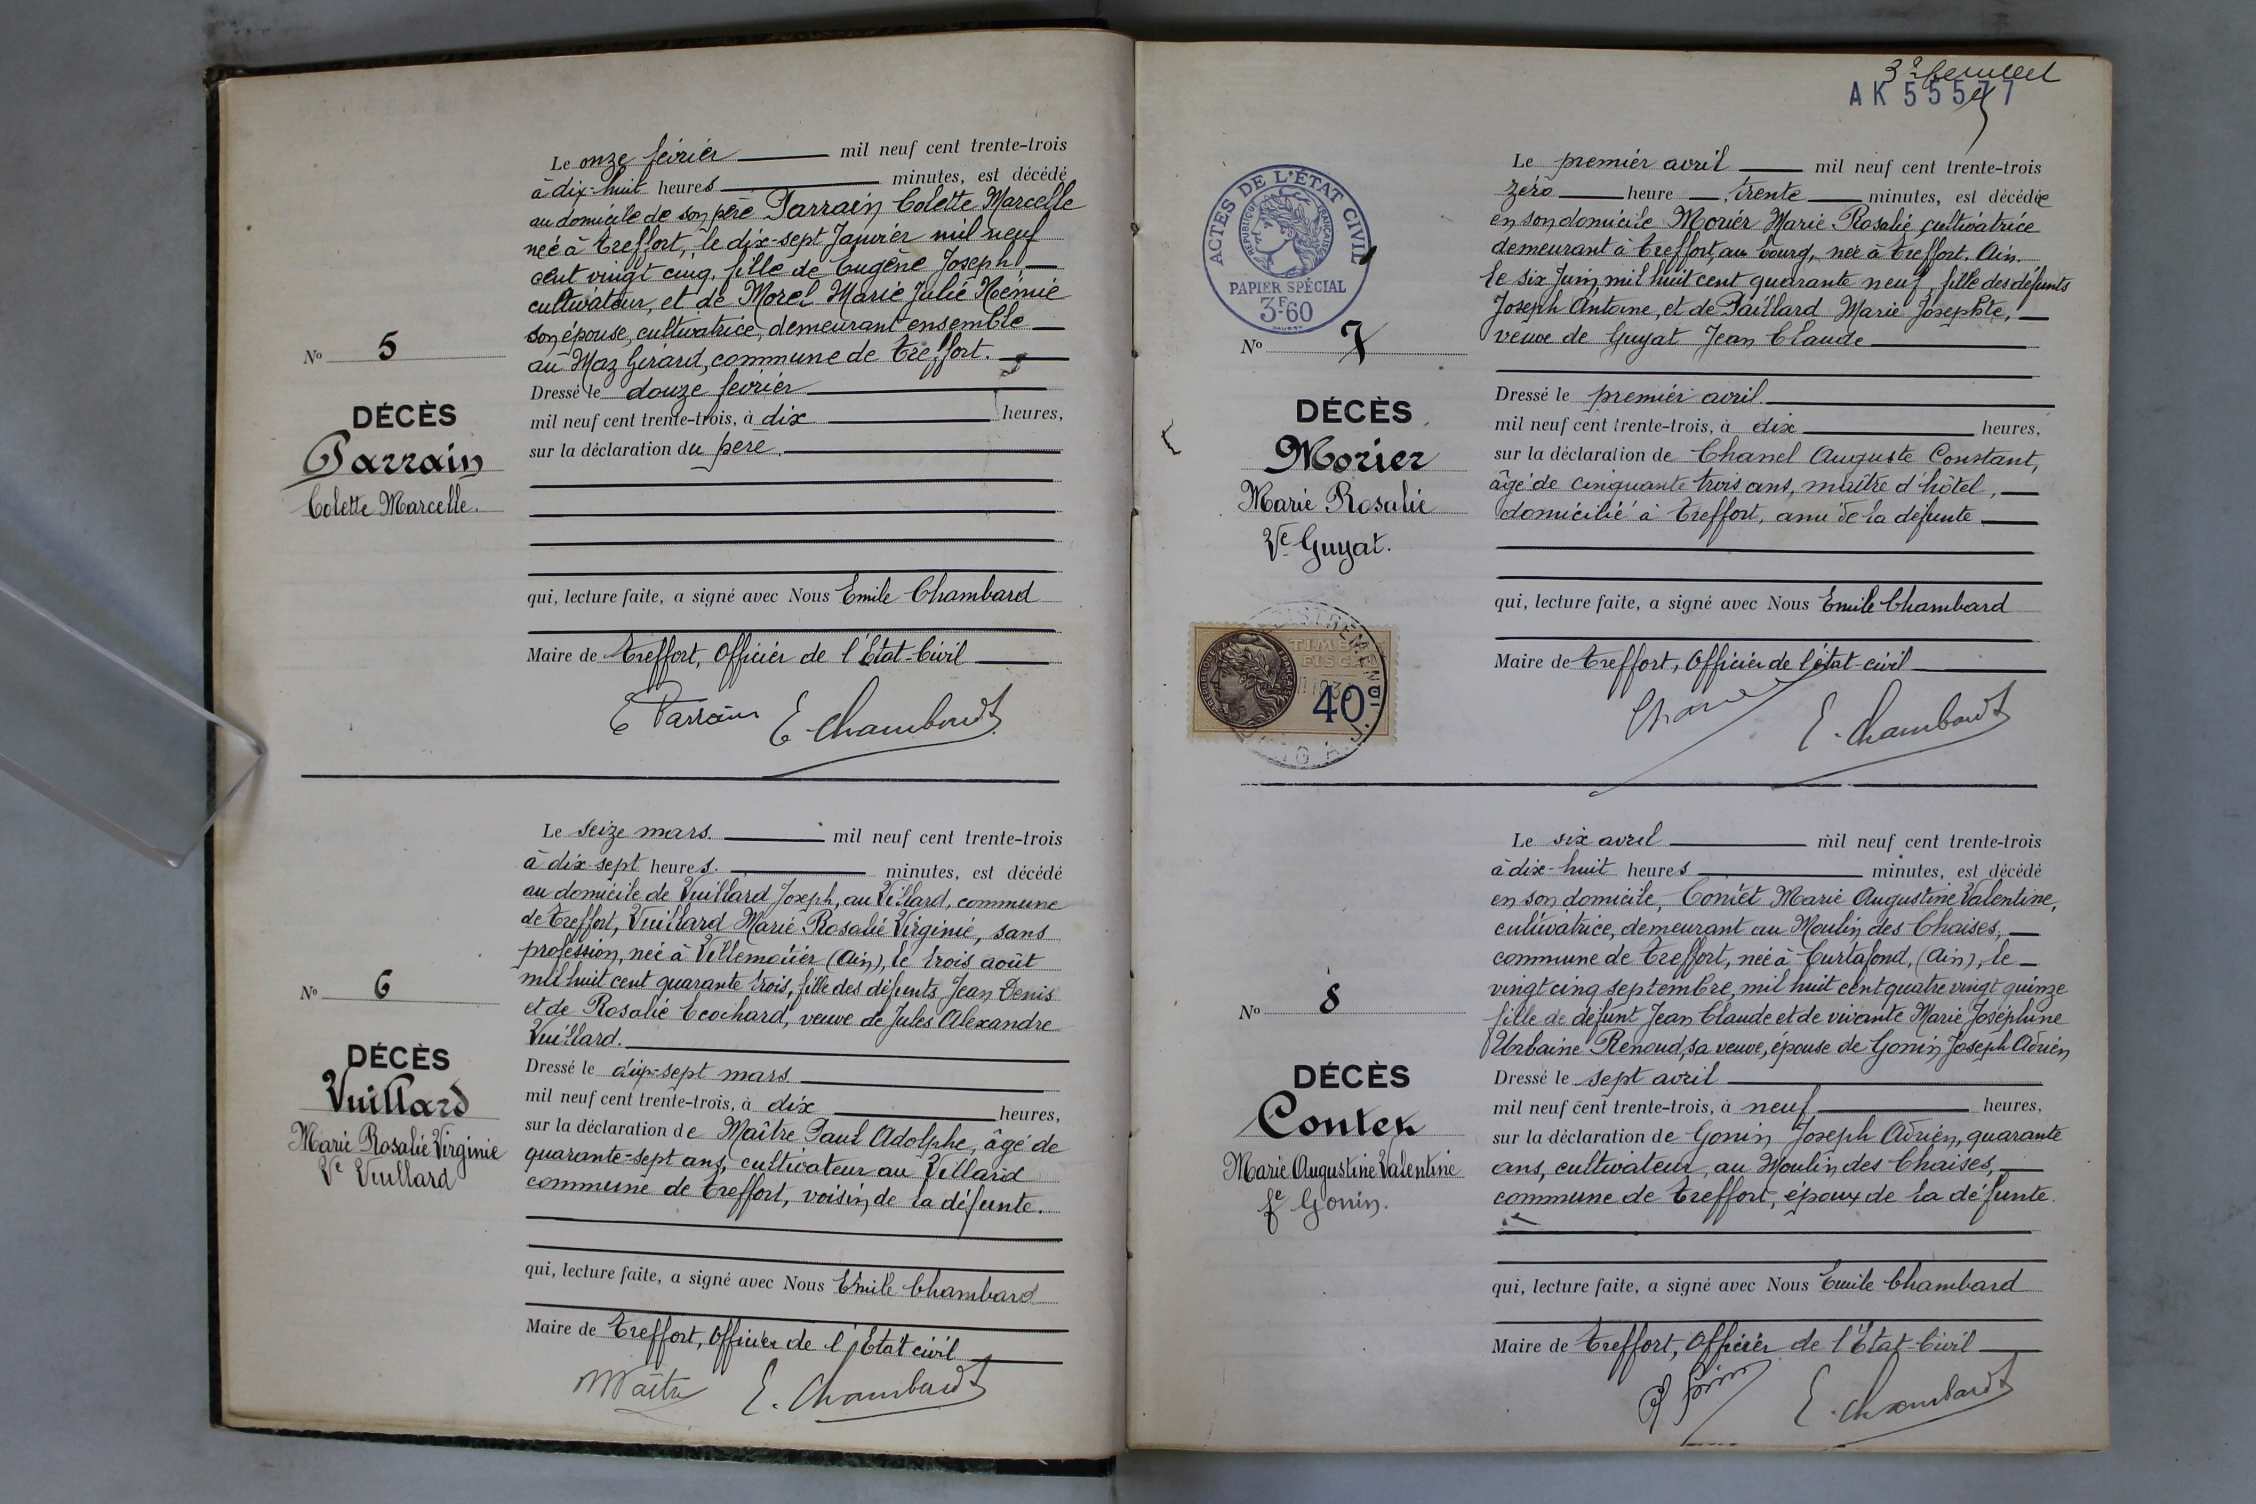 Le onze février mil neuf cent trente-trois
à dix-huit heures minutes, est décédé
au domicile de son père Parrain Colette Marcelle
née à Treffort, le dix-sept Janvier mil neuf
cent vingt cinq, fille de Eugène Joseph,
cultivateur, et de Morel Marie Julie Noémie
son épouse, cultivatrice, demeurant ensemble
au Maz Girard, commune de Treffort.
No 5
Dressé le douze février
mil neuf cent trente-trois, à dix heures,
sur la déclaration du père.
DÉCÈS
Parrain
Colette Marcelle.
qui, lecture faite, a signé avec Nous Emile Chambard
Maire de Treffort, Officier de l'Etat-Civil
E Parrain E. Chambard
Le seize mars. mil neuf cent trente-trois
à dix-sept heures. minutes, est décédé
au domicile de Vuillard Joseph, au Villard, commune
de Treffort, Vuillard Marie Rosalie Virginie, sans
profession, née à Villemotier (Ain), le trois août
mil huit cent quarante trois, fille des défunts Jean Denis
et de Rosalie Ecochard, veuve de Jules Alexandre
Vuillard.
No 6
Dressé le dix-sept mars
mil neuf cent trente-trois, à dix heures,
sur la déclaration de Maître Paul Adolphe, âgé de
quarante-sept ans, cultivateur au Villard
commune de Treffort, voisin de la défunte.
DÉCÈS
Vuillard
Marie Rosalie Virginie
Ve Vuillard
qui, lecture faite, a signé avec Nous Emile Chambard
Maire de Treffort, Officier de l'Etat civil
Maître E. Chambard
3e feuillet
AK 55577
ACTES DE L'ÉTAT CIVIL
RÉPUBLIQUE FRANÇAISE
PAPIER SPÉCIAL
3F60
Le premier avril mil neuf cent trente-trois
zéro heure trente minutes, est décédée
en son domicile Morier Marie Rosalie, cultivatrice
demeurant à Treffort, au bourg, née à Treffort. Ain.
le six Juin mil huit cent quarante neuf, fille des défunts
Joseph Antoine, et de Paillard Marie Josephte,
veuve de Guyat Jean Claude
No 7
Dressé le premier avril.
mil neuf cent trente-trois, à dix heures,
sur la déclaration de Chanel Auguste Constant,
âgé de cinquante trois ans, maître d'hôtel,
domicilié à Treffort, ami de la défunte
DÉCÈS
Morier
Marie Rosalie
Ve Guyat.
TIMBRE
FISCAL
40
qui, lecture faite, a signé avec Nous Emile Chambard
Maire de Treffort, Officier de l'état-civil
Chanel E. Chambard
Le six avril mil neuf cent trente-trois
à dix-huit heures minutes, est décédé
en son domicile, Contet Marie Augustine Valentine,
cultivatrice, demeurant au Moulin des Chaises,
commune de Treffort, née à Curtafond, (Ain), le
vingt cinq septembre, mil huit cent quatre vingt quinze
fille de défunt Jean Claude et de vivante Marie Joséphine
Urbaine Renoud, sa veuve, épouse de Gonin Joseph Adrien
No 8
Dressé le sept avril
mil neuf cent trente-trois, à neuf heures,
sur la déclaration de Gonin Joseph Adrien, quarante
ans, cultivateur, au Moulin des Chaises,
commune de Treffort, époux de la défunte.
DÉCÈS
Contet
Marie Augustine Valentine
fe Gonin.
qui, lecture faite, a signé avec Nous Emile Chambard
Maire de Treffort, Officier de l'Etat-Civil
Gonin E. Chambard